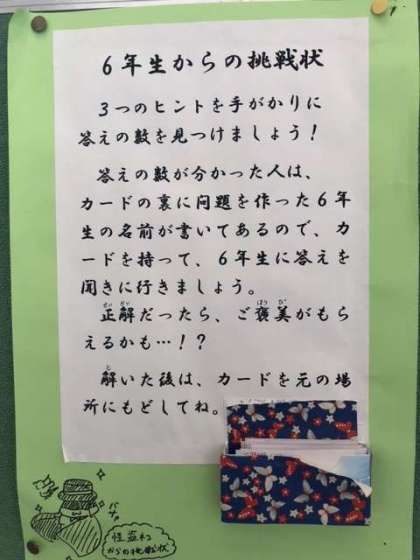 6年生からの挑戦状
3つのヒントを手がかりに
答えの数を見つけましょう！
答えの数が分かった人は、
カードの裏に問題を作った6年
生の名前が書いてあるので、カ
ードを持って、6年生に答えを
聞きに行きましょう。
正解だったら、ご褒美がもら
えるかも…！？
解いた後は、カードを元の場
所にもどしてね。
怪盗ねこ
からの挑戦状